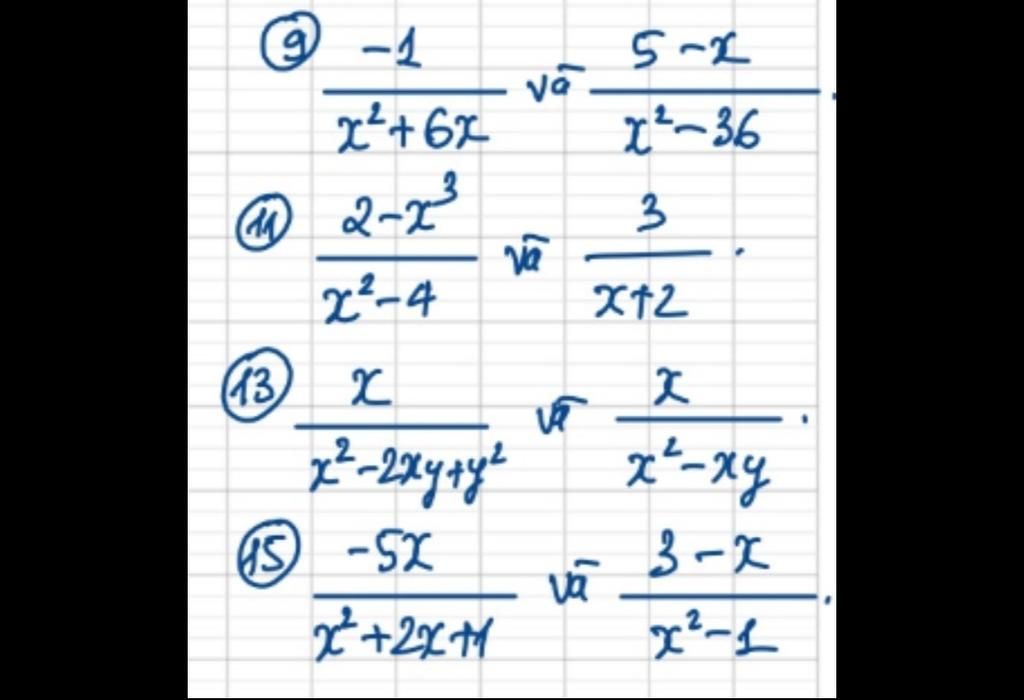 ⑨ -1/(x²+6x) và (5-x)/(x²-36).
⑪ (2-x³)/(x²-4) và 3/(x+2).
⑬ x/(x²-2xy+y²) và x/(x²-xy).
⑮ -5x/(x²+2x+1) và (3-x)/(x²-1).